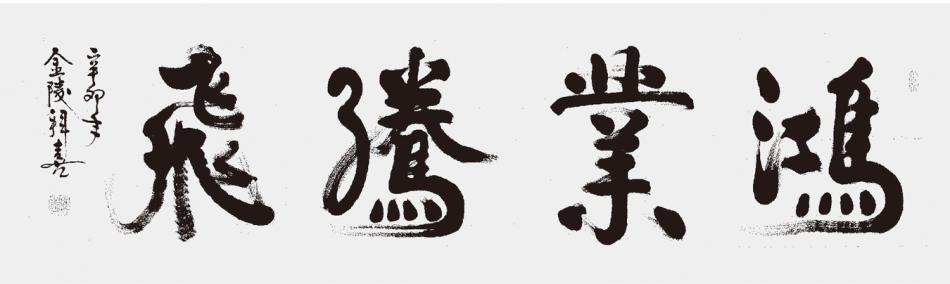 鴻業騰飛
辛卯年
金陵